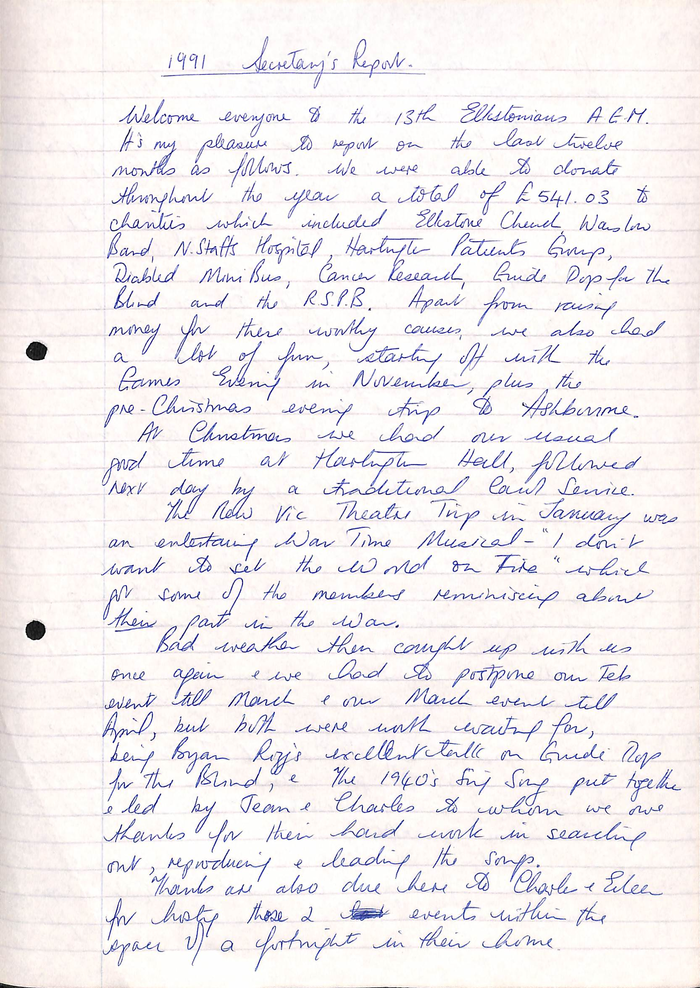 1991 Secretary's Report.
Welcome everyone to the 13th Elkstonians A.E.M.
It's my pleasure to report on the last twelve
months as follows. We were able to donate
throughout the year a total of £541.03 to
charities which included Elkstone Church, Warslow
Band, N. Staffs Hospital, Hartington Patients Group,
Diabled Mini Bus, Cancer Research, Guide Dogs for the
Blind and the R.S.P.B. Apart from raising
money for these worthy causes, we also had
a lot of fun, starting off with the
Games Evening in November, plus the
pre-Christmas evening trip to Ashbourne.
At Christmas we had our usual
good time at Hartington Hall, followed
next day by a traditional Carol Service.
The New Vic Theatre Trip in January was
an entertaing War Time Musical - "I don't
want to set the World on Fire" which
got some of the members reminiscing about
their part in the War.
Bad weather then caught up with us
once again & we had to postpone our Feb
event till March & our March event till
April, but both were worth waiting for,
being Bryan excellent talk on Guide Dogs
for the Blind, & The 1940's Sing Song put together
& led by Jean & Charles to whom we owe
thanks for their hard work in searching
out, reproducing & leading the songs.
Thanks are also due here to Charles & Eileen
for hosting those 2 events within the
space of a fortnight in their home.